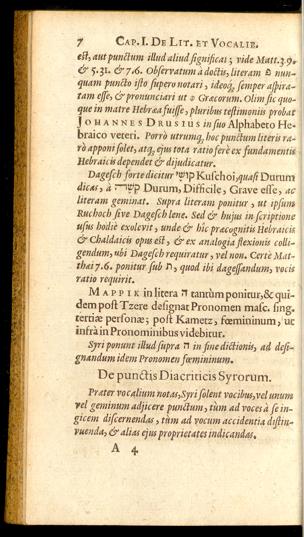 7 CAP. I. DE LIT. ET VOCALIB.
est, aut punctum illud aliud significat; vide Matt. 3.9.
& 5.31. & 7.6. Observatum à doctis, literam פ nun-
quam puncto isto supero notari, ideoq, semper aspira-
tam esse, & pronunciari ut φ Græcorum. Olim sic quo-
que in matre Hebræa fuisse, pluribus testimoniis probat
JOHANNES DRUSIUS in suo Alphabeto He-
braico veteri. Porrò utrumq, hoc punctum literis ra-
rò apponi solet, atq, ejus tota ratio ferè ex fundamentis
Hebraicis dependet & dijudicatur.
Dagesch forte dicitur קושי Kuschoi, quasi Durum
dicas, à קשה Durum, Difficile, Grave esse, ac
literam geminat. Supra literam ponitur, ut ipsum
Ruchoch sive Dagesch lene. Sed & hujus in scriptione
usus hodiè exolevit, unde & hîc præcognitis Hebraicis
& Chaldaicis opus est, & ex analogia flexionis colli-
gendum, ubi Dagesch requiratur, vel non. Certè Mat-
thæi 7.6. ponitur sub ת, quod ibi dagessandum, vocis
ratio requirit.
MAPPIK in litera ה tantùm ponitur, & qui-
dem post Tzere designat Pronomen masc. sing.
tertiæ personæ; post Kametz, fœmininum, ut
infrà in Pronominibus videbitur.
Syri ponunt illud supra ה in fine dictionis, ad desi-
gnandum idem Pronomen fœmininum.
De punctis Diacriticis Syrorum.
Præter vocalium notas, Syri solent vocibus, vel unum
vel geminum adjicere punctum, tùm ad voces à se in-
gicem discernendas, tùm ad vocum accidentia distin-
guenda, & alias ejus proprietates indicandas.
A 4